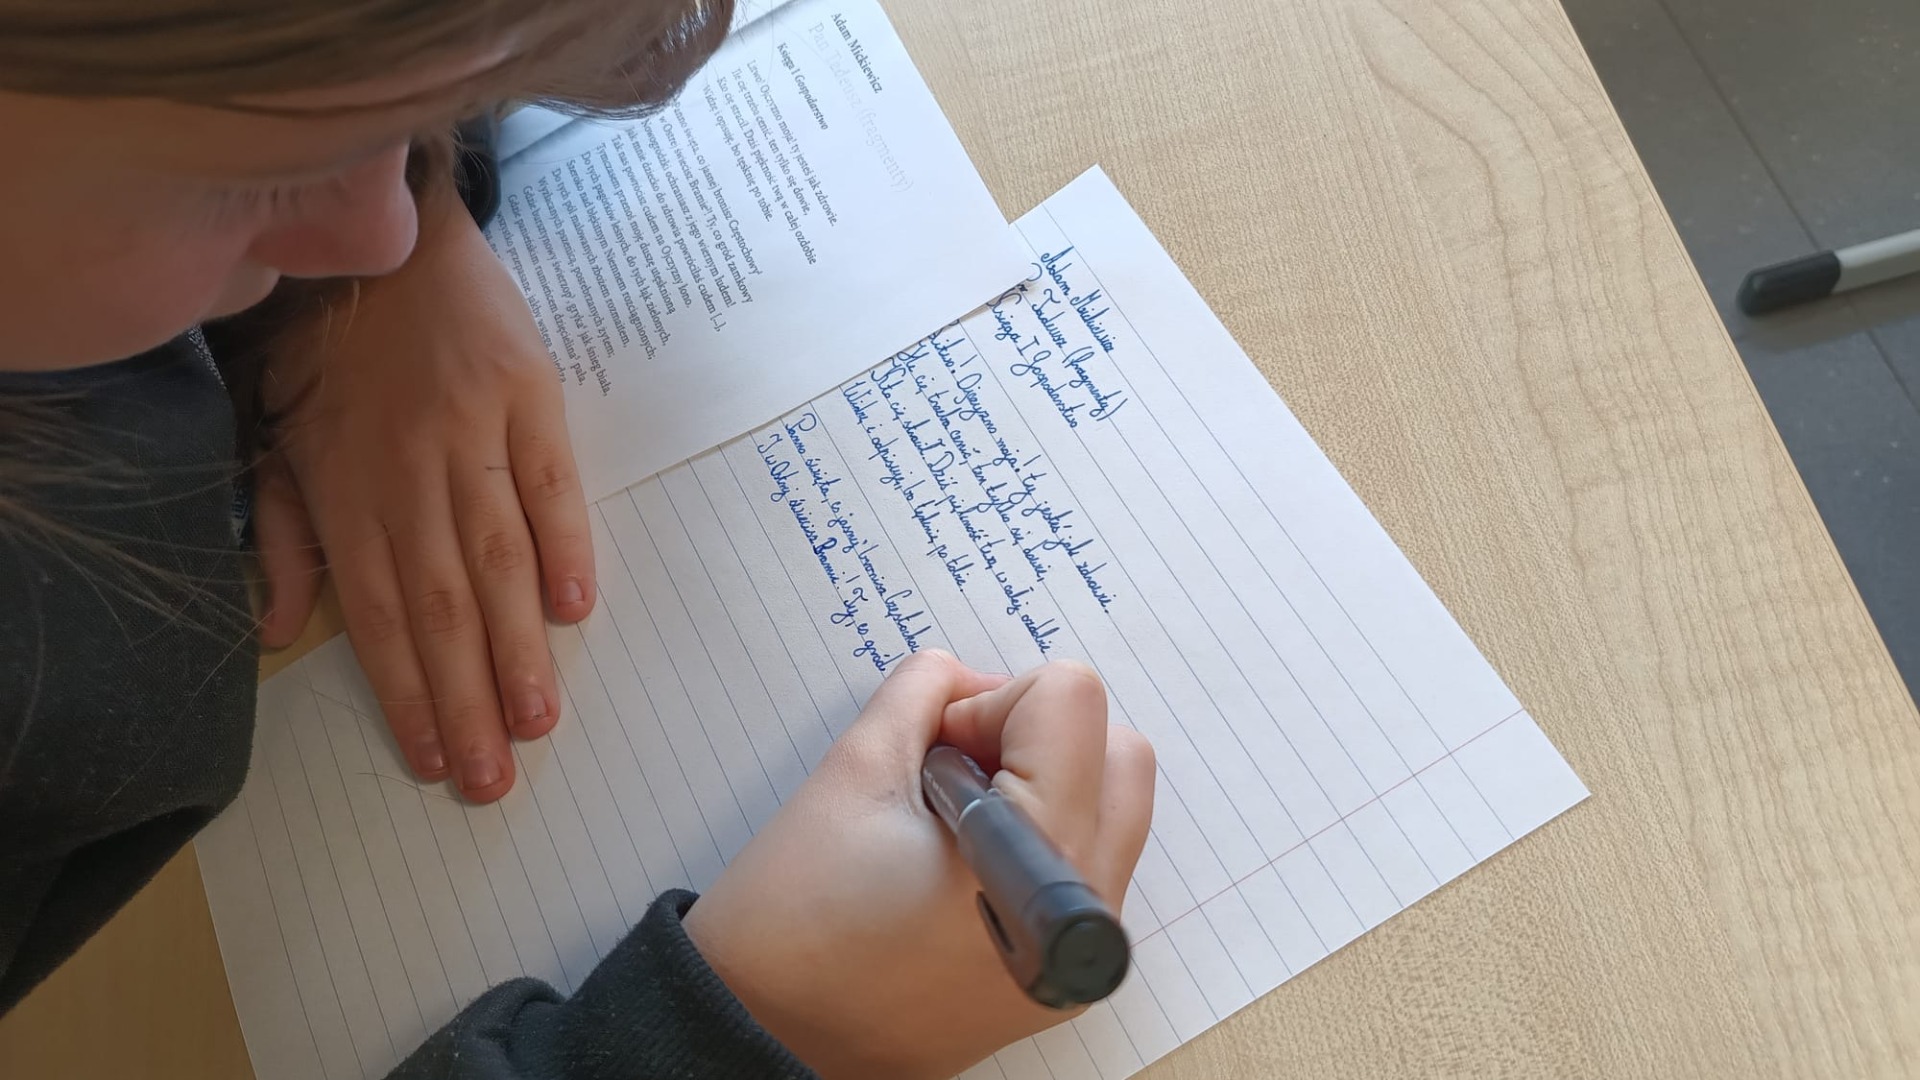 Adam Mickiewicz
Pan Tadeusz (fragmenty)
Księga I Gospodarstwo
Litwo! Ojczyzno moja! ty jesteś jak zdrowie.
Ile cię trzeba cenić, ten tylko się dowie,
Kto cię stracił. Dziś piękność twą w całej ozdobie
Widzę i opisuję, bo tęsknię po tobie.
Panno święta, co jasnej bronisz Częstochowy
w Ostrej świecisz Bramie! Ty, co gród zamkowy
Nowogródzki ochraniasz z jego wiernym ludem!
Jak mnie dziecko do zdrowia powróciłaś cudem [...],
Tak nas powrócisz cudem na Ojczyzny łono.
Tymczasem przenoś moję duszę utęsknioną
Do tych pagórków leśnych, do tych łąk zielonych,
Szeroko nad błękitnym Niemnem rozciągnionych;
Do tych pól malowanych zbożem rozmaitem,
Wyzłacanych pszenicą, posrebrzanych żytem;
Gdzie bursztynowy świerzop, gryka jak śnieg biała,
Gdzie panieńskim rumieńcem dzięcielina pała,
wszystko przepasane, jakby wstęgą, miedzą
Adam Mickiewicz
Tadeusz (fragmenty)
Księga I Gospodarstwo
Litwo! Ojczyzno moja! ty jesteś jak zdrowie.
Ile cię trzeba cenić, ten tylko się dowie,
Kto cię stracił. Dziś piękność twą w całej ozdobie
Widzę i opisuję, bo tęsknię po tobie.
Panno święta, co jasnej bronisz Częstochow
I w Ostrej świecisz Bramie! Ty, co gród